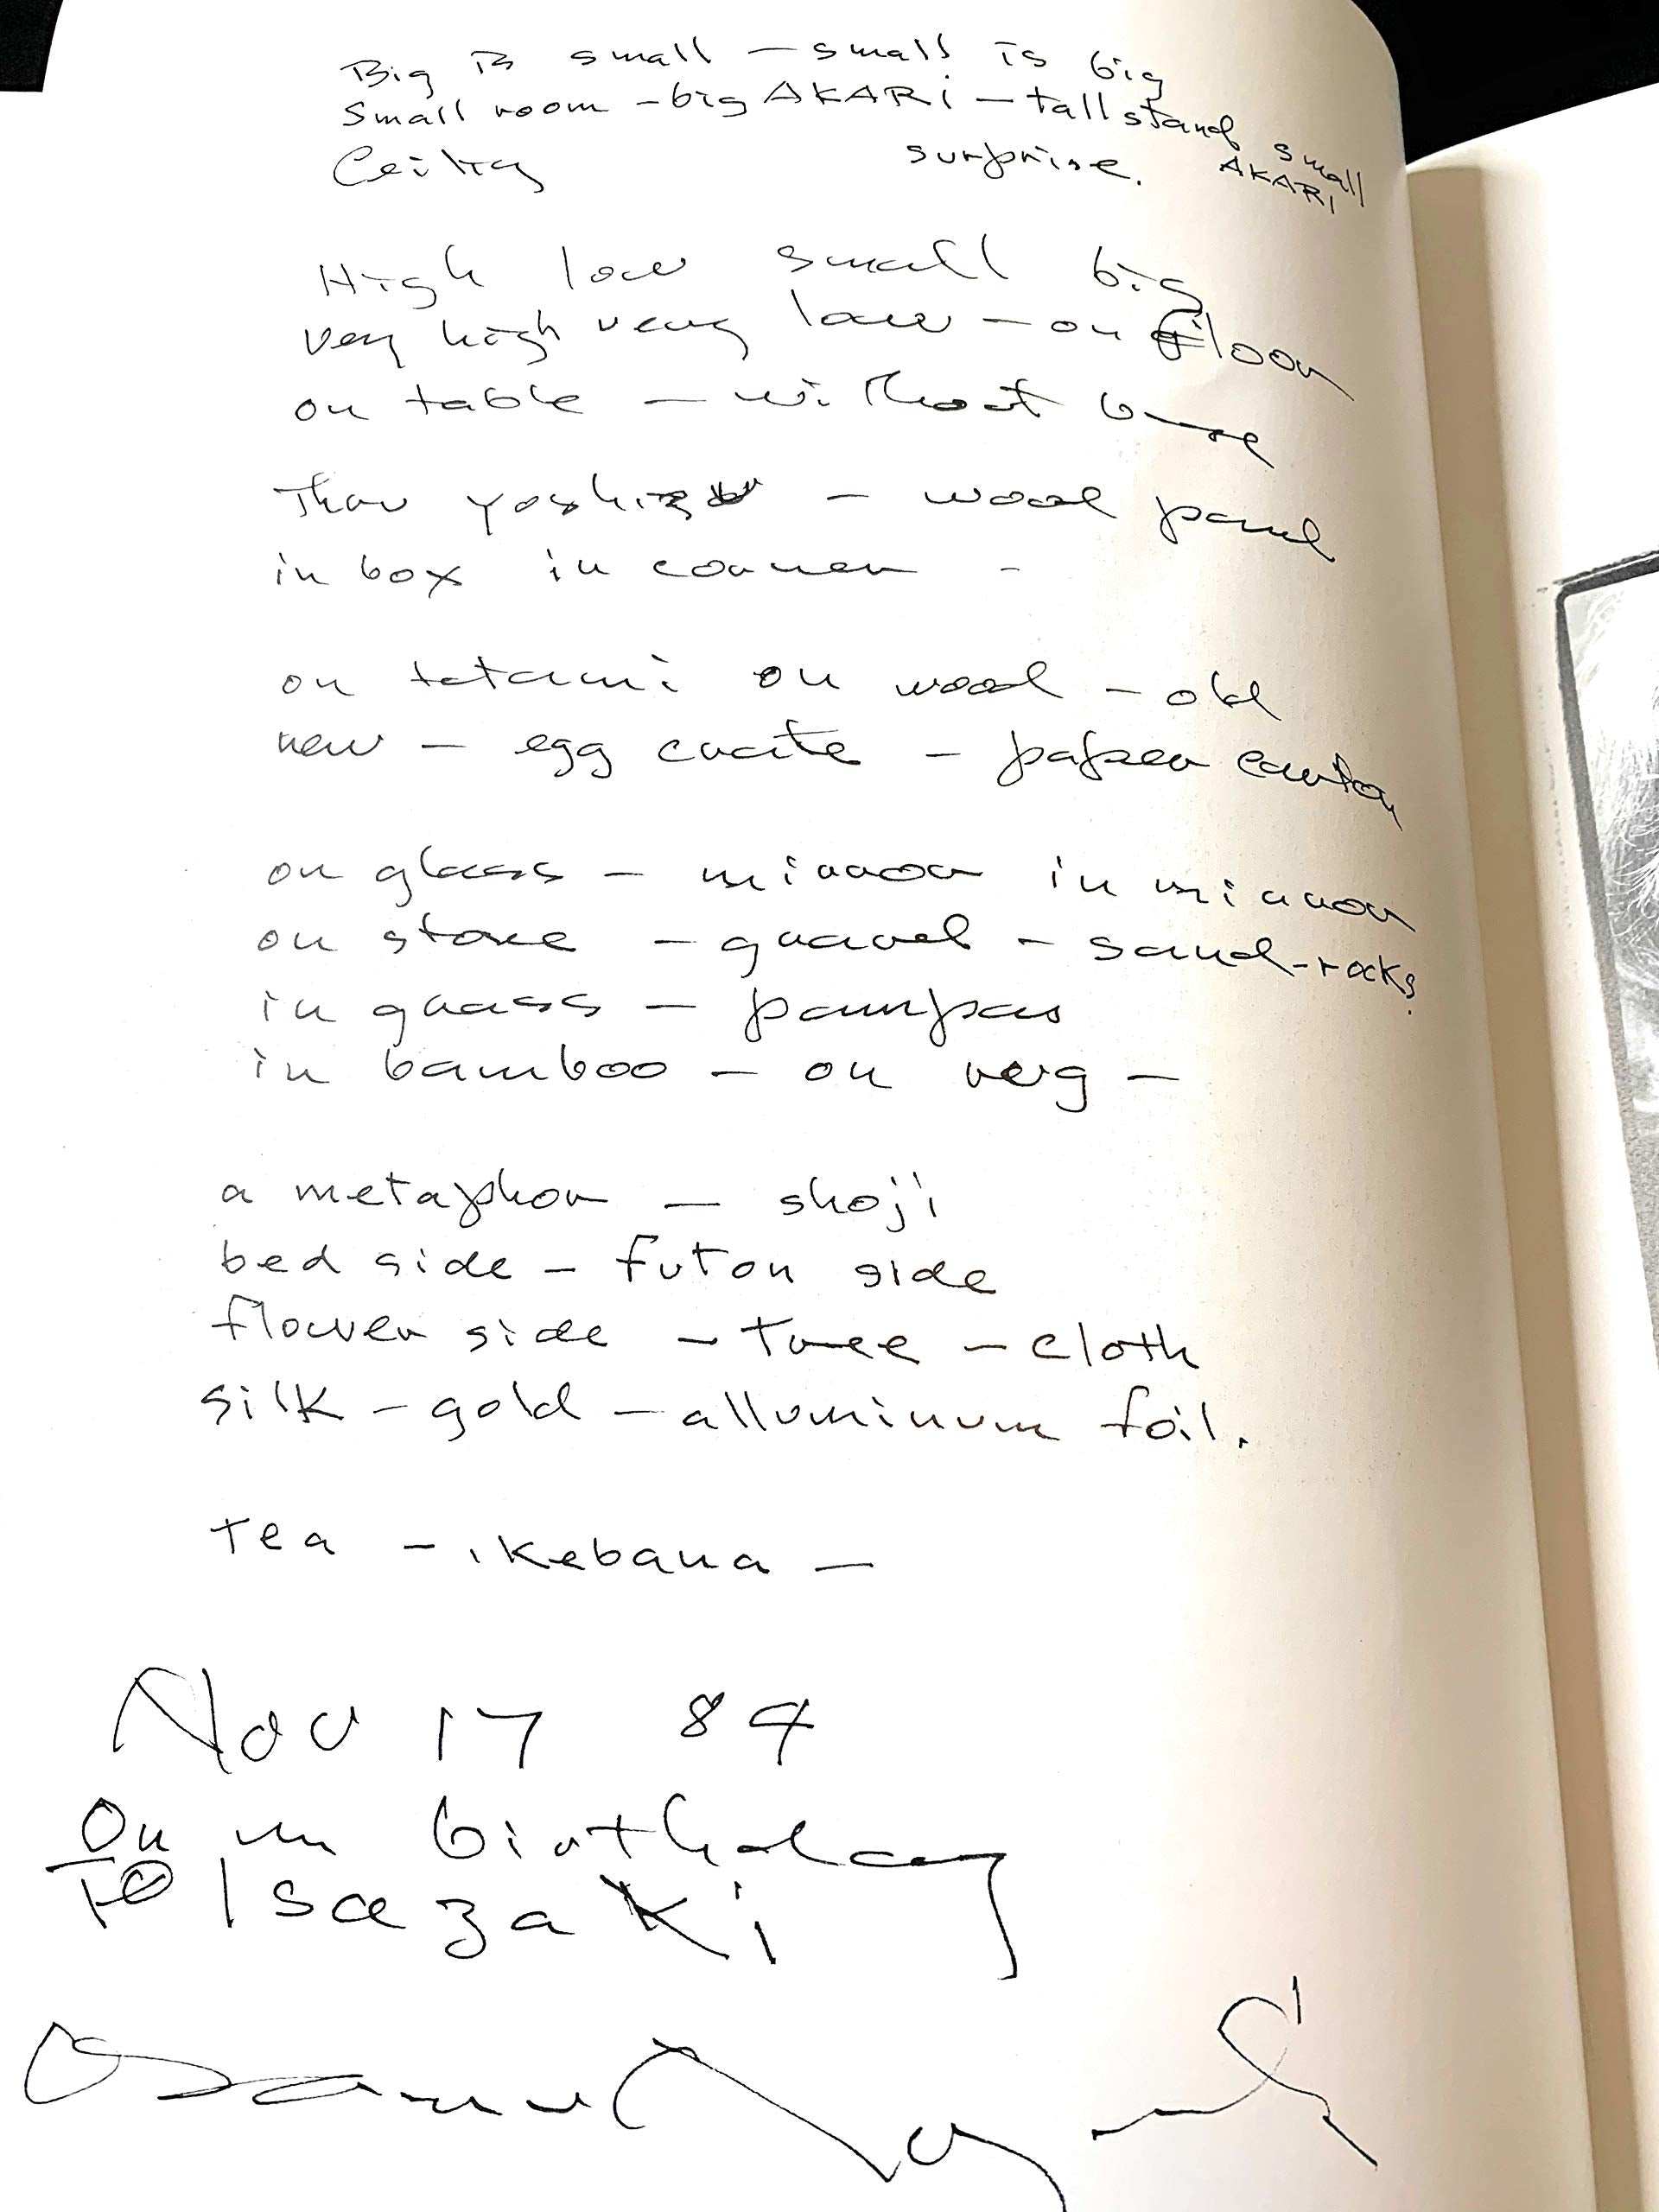 Big is small — small is big
Small room - big AKARI — tall stand small AKARI
Ceiling surprise.
High low small big
very high very low — on floor
on table — without base
Thru — wood panel
in box in corner -
on tatami on wood - old
new — egg crate - paper carton
on glass - mirror in mirror
on stone - gravel - sand-rocks
in grass — pampas
in bamboo — on —
a metaphor — shoji
bed side - futon side
flower side - tree - cloth
silk - gold - alluminum foil.
tea - ikebana —
Nov 17 84
On m birthday
To Isozaki